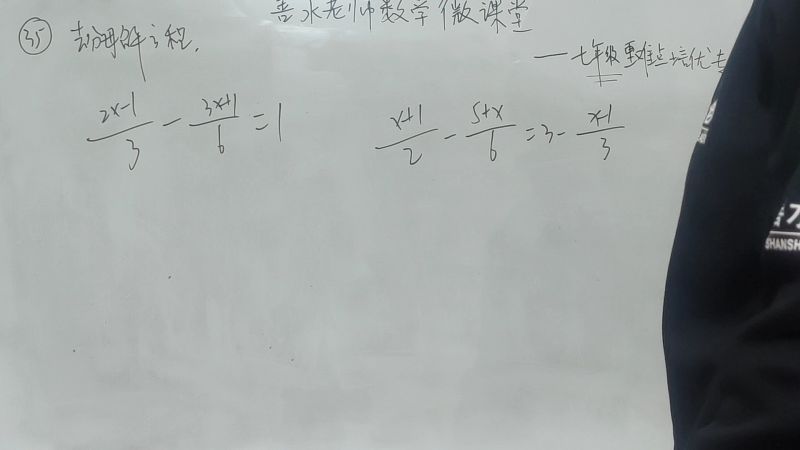 善水老师数学微课堂
㉟ 去分母解方程.
— 七年级重难点培优专
(2x-1)/3 - (3x+1)/6 = 1
(x+1)/2 - (5+x)/6 = 3 - (x-1)/3
SHANSH